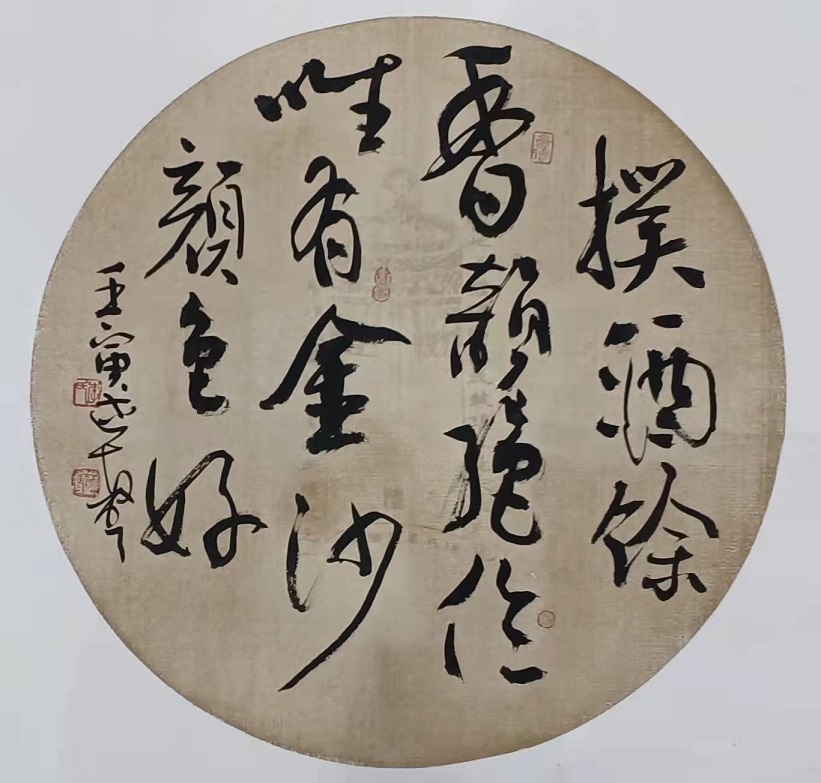 撲酒餘
香韻絕倫
唯有金沙
顏色好
壬寅